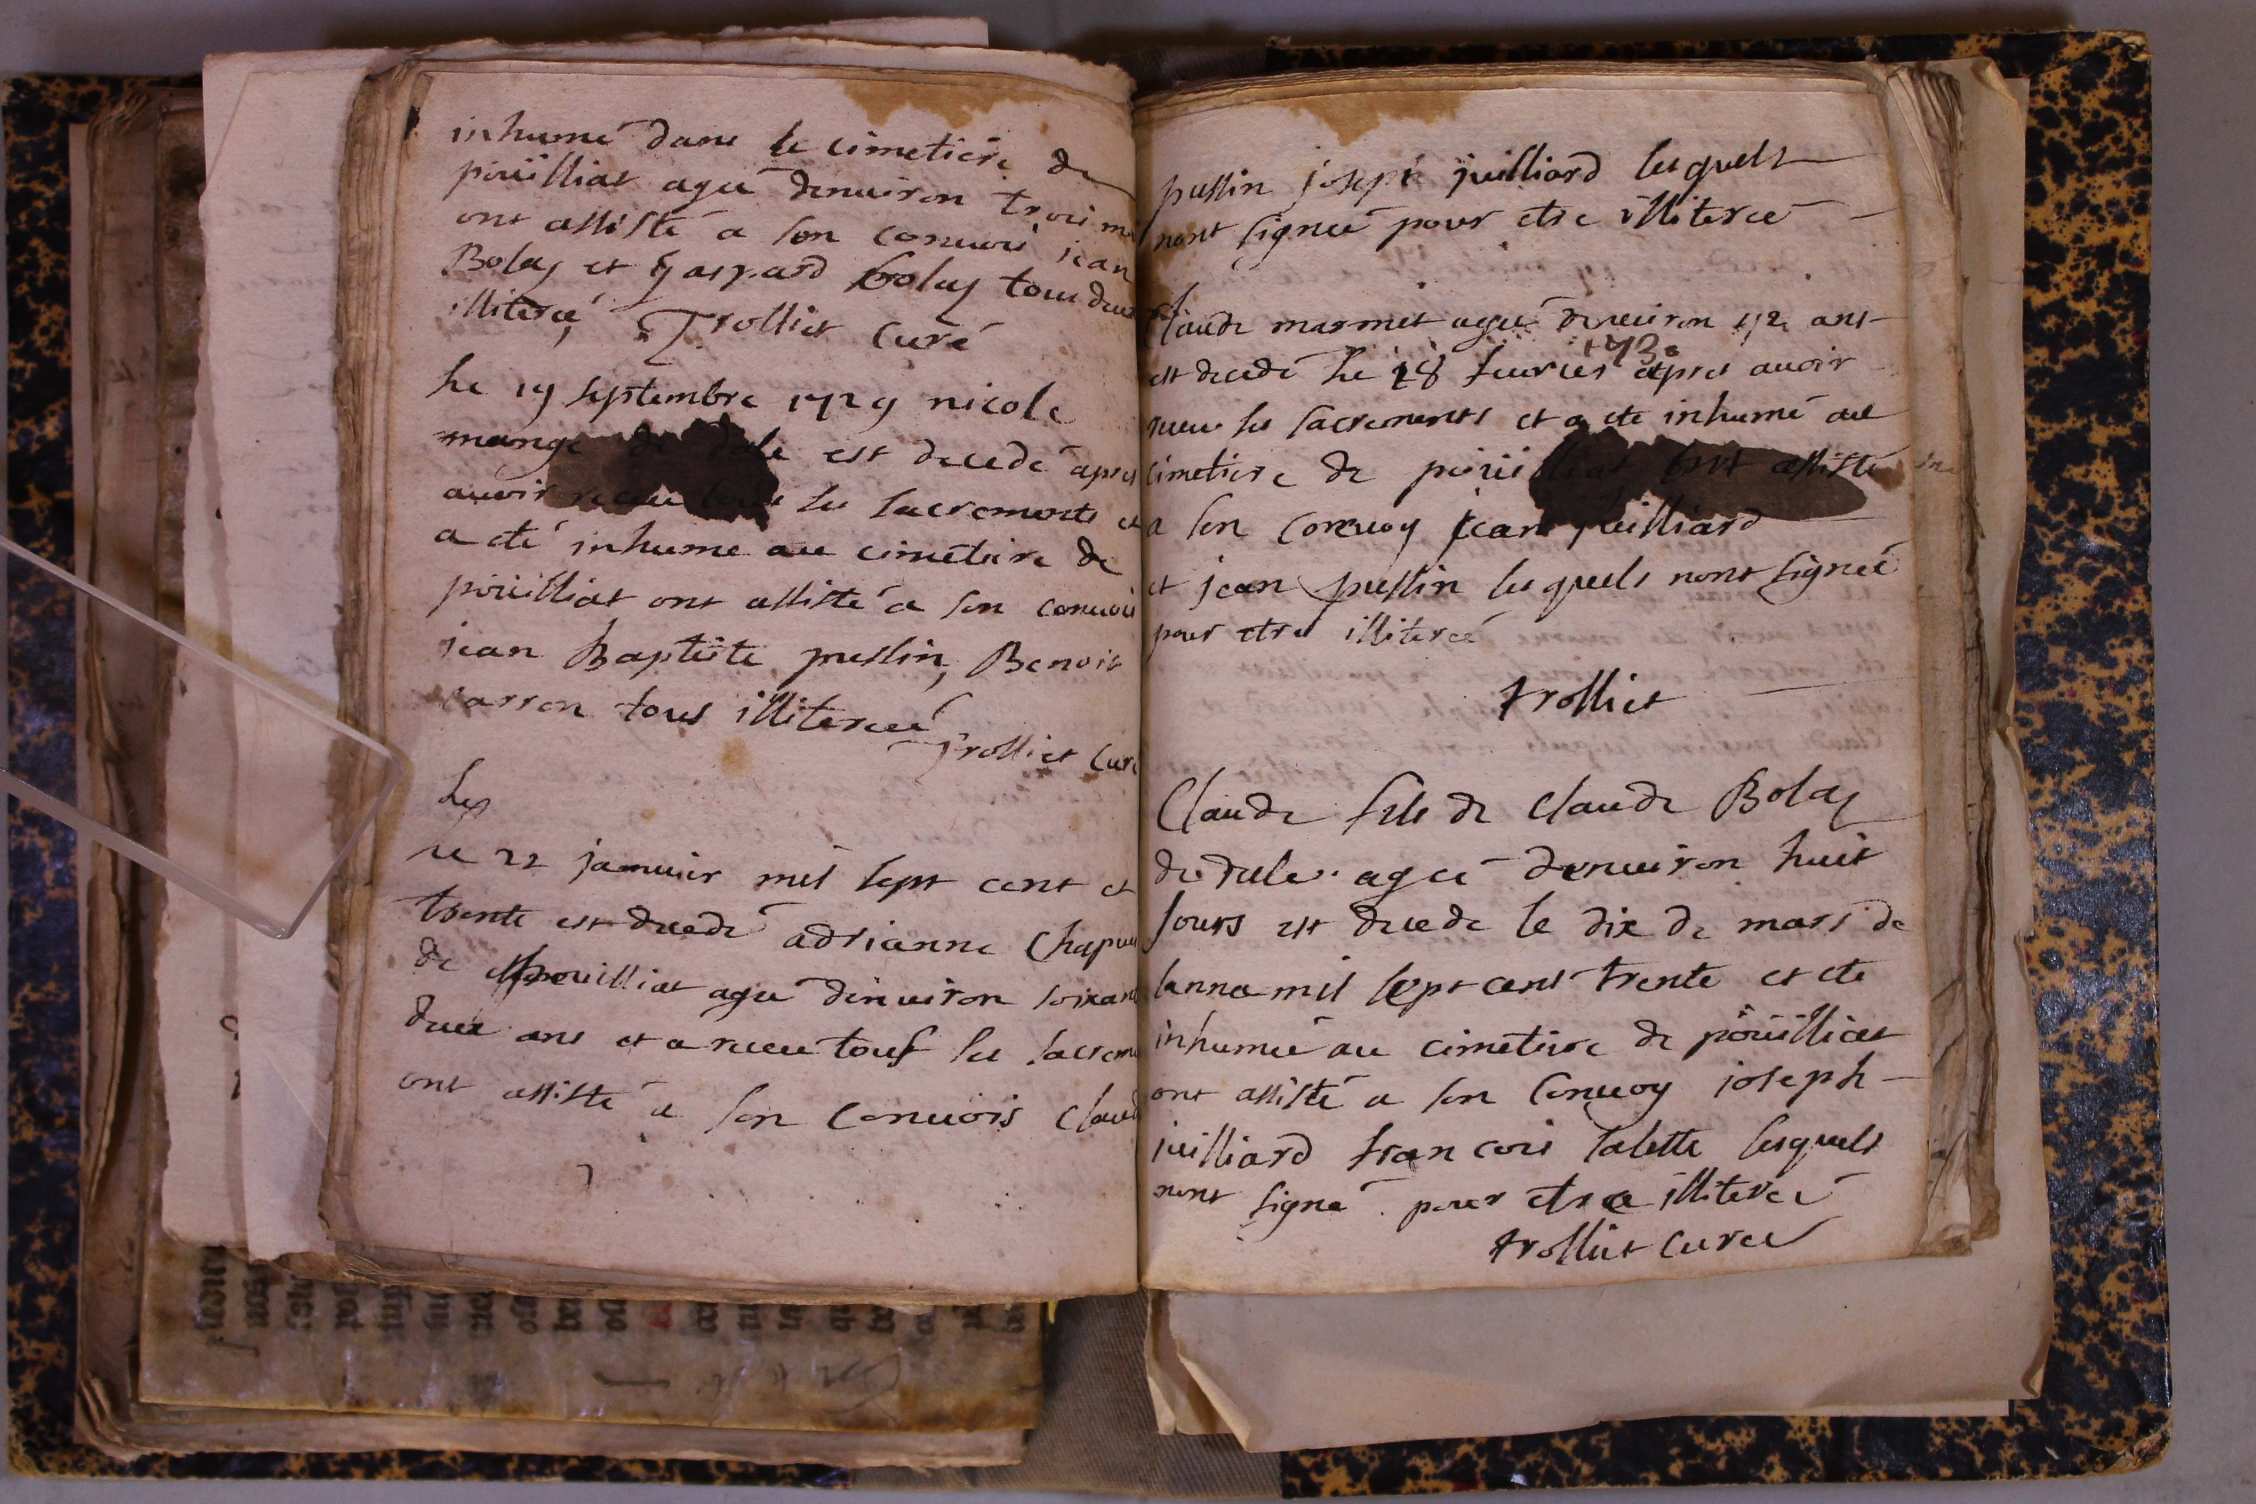 inhumé dans le cimetiére de
poüilliat ageé denuiron trois
ont assisté a son conuoi jean
Bolay et gaspard bolay tous deux
illiteré Trolliet curé
Le 19 septembre 1729 nicole
mange de dule est decedé apres
auoir receu tous les sacrements et
a eté inhume au cimetiere de
poüilliat ont assisté a son conuoi
jean Baptiste puslin, Benoit
carron tous illitereé
Trolliet Curé
Le
Le 22 januier mil sept cent et
trente est decedé adrianne Chapui
de pouilliat ageé denuiron soixante
deux ans et a receu tous les sacrem
ont assisté a son conuois Claud
puslin joseph juilliard lesquels
nont signeé pour etre illitereé
Claude marmet ageé denuiron 72 ans
1730
est decedé Le 18 feurier apres auoir
receu les sacrements et a ete inhumé au
cimetiere de poüilliat ont assisté
a son conuoy jean juilliard
et jean puslin lesquels nont signeé
pour etre illitereé
trolliet
Claude fils de claude Bolay
de dule ageé denuiron huit
jours est decede le dix de mars de
lanneé mil sept cent trente et ete
inhumé au cimetiere de poüilliat
ont assisté a son conuoy joseph
juilliard francois lalette lesquels
nont signé pour etre illitereé
trolliet cureé